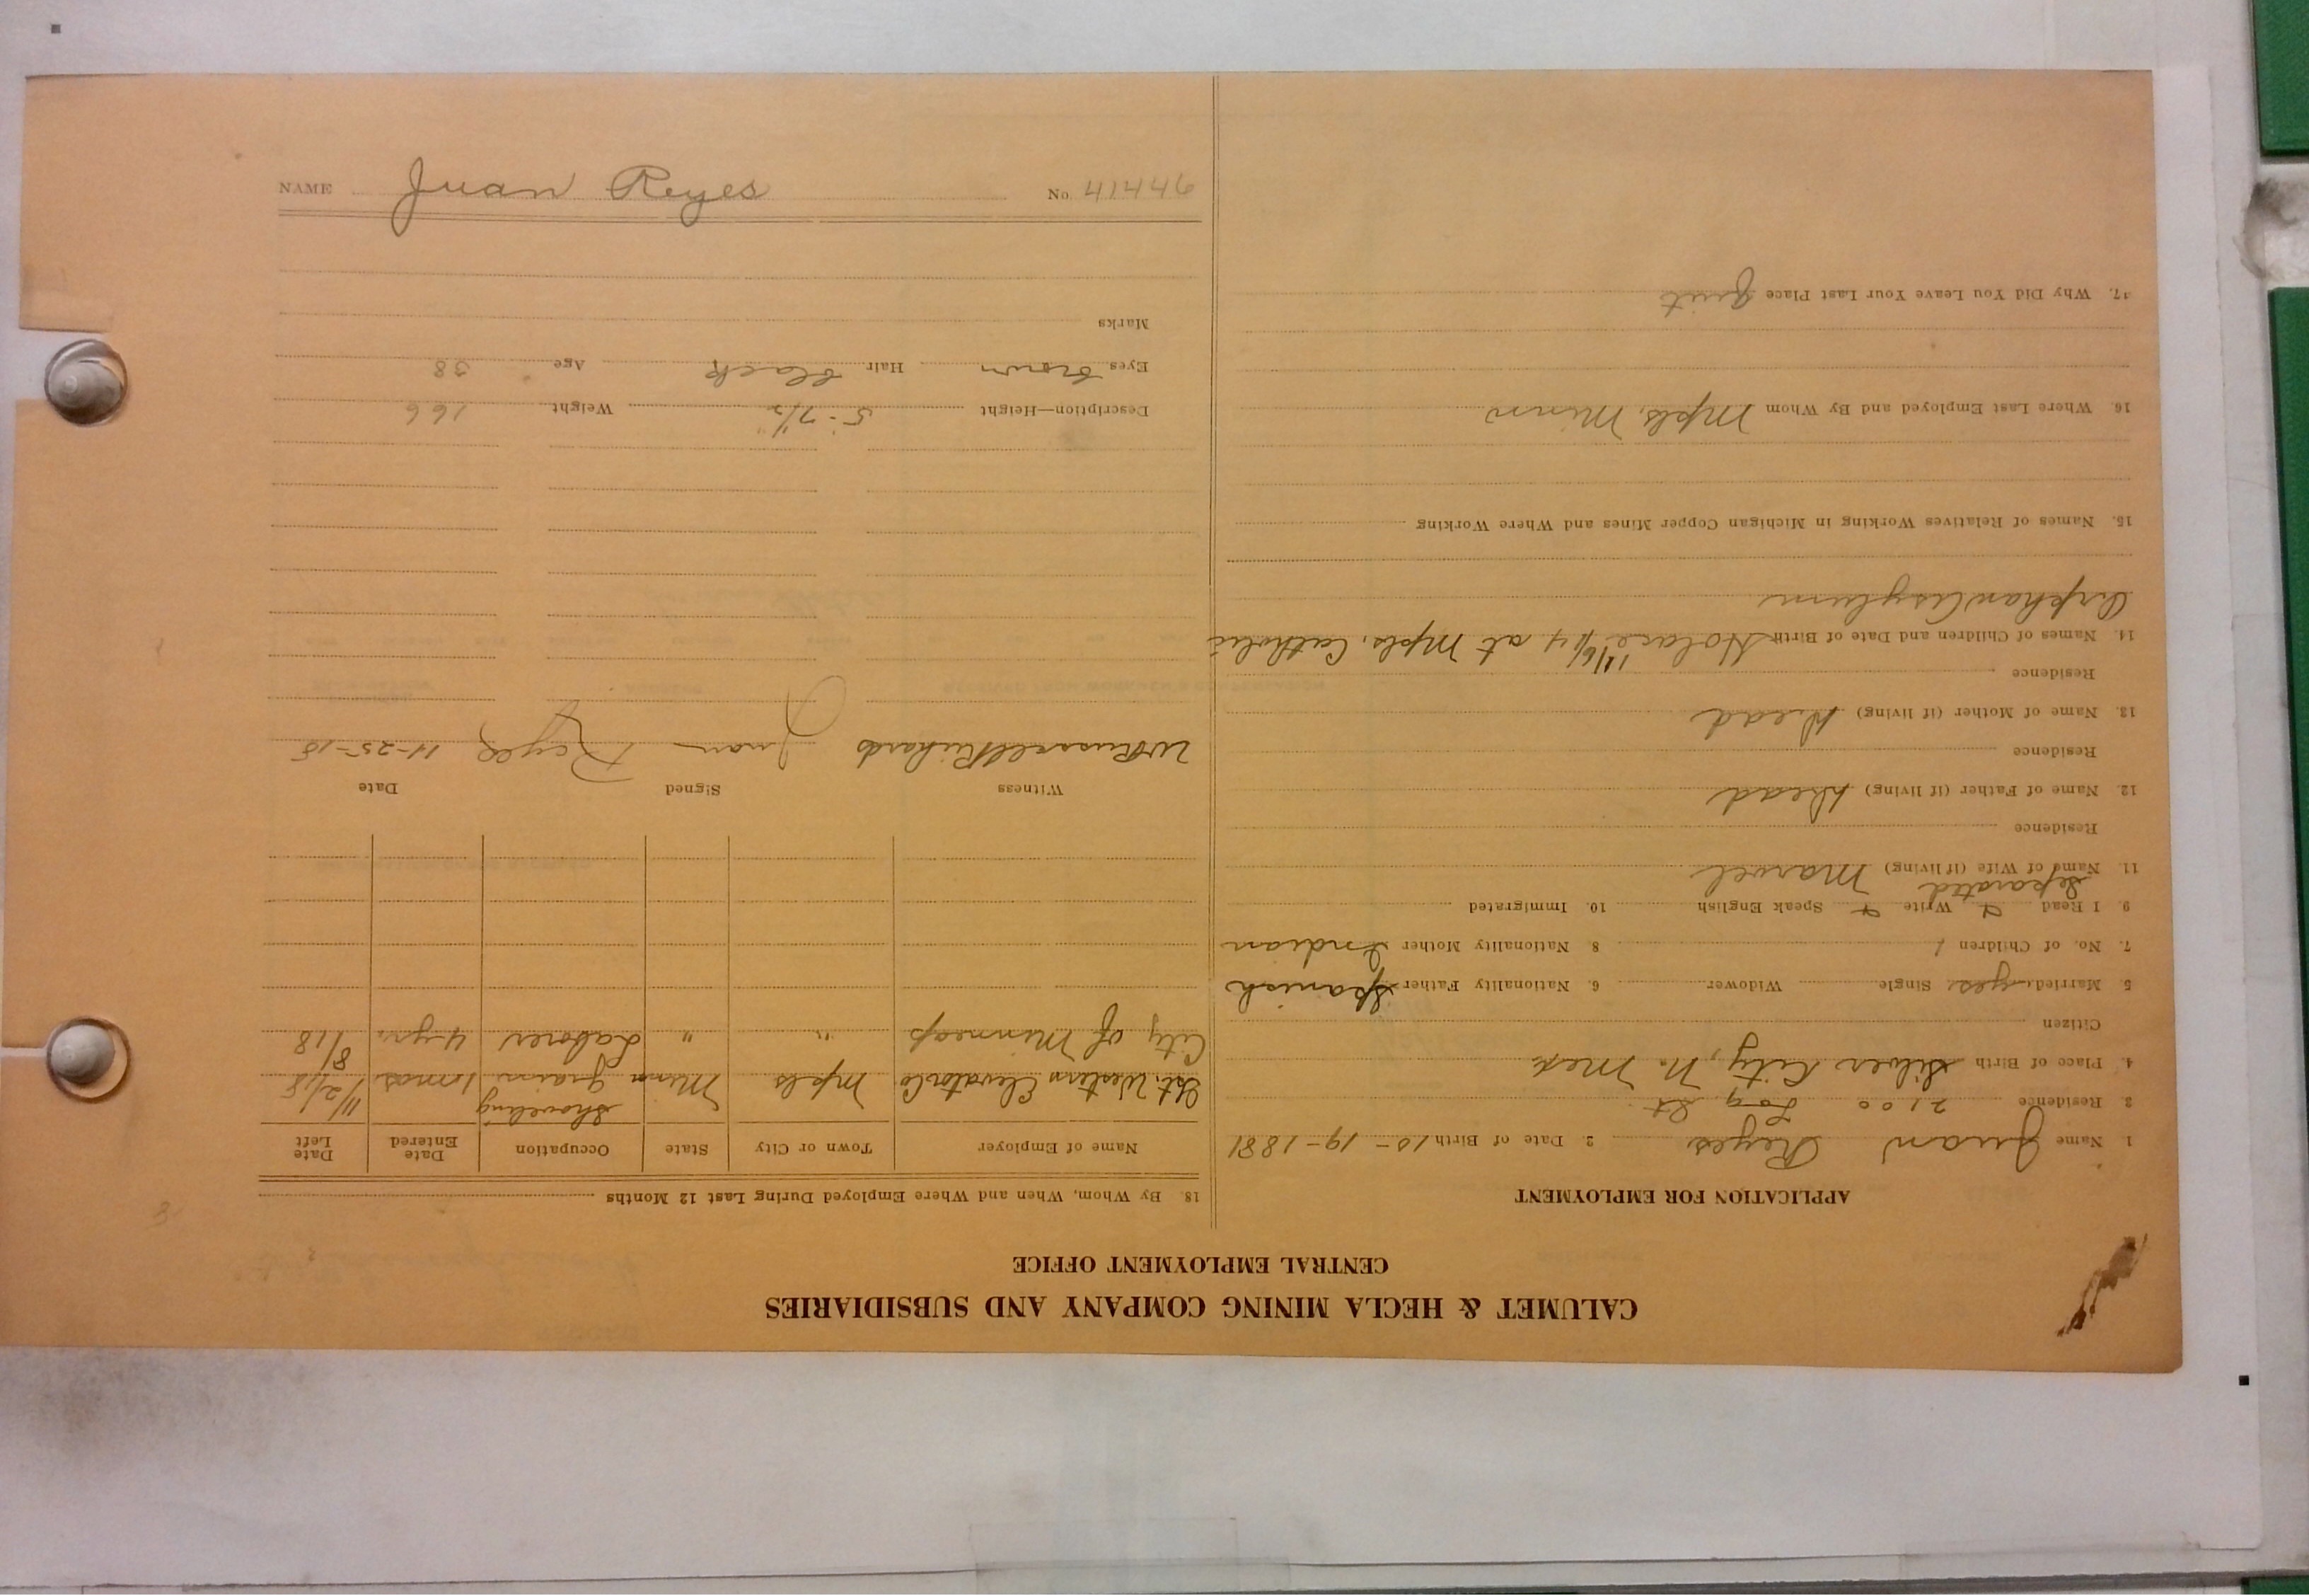 NAME Juan Reyes No. 41446
CALUMET & HECLA MINING COMPANY AND SUBSIDIARIES
CENTRAL EMPLOYMENT OFFICE
APPLICATION FOR EMPLOYMENT
1. Name Juan Reyes 2. Date of Birth 10-19-1881
3. Residence 2100 Log St.
4. Place of Birth Silver City, N. Mex
Citizen
5. Married yes. Single Widower 6. Nationality Father Spanish
7. No. of Children 1 8. Nationality Mother Indian
9. I Read Write Speak English 10. Immigrated
Separated
11. Name of Wife (if living) Marvel
Residence
12. Name of Father (if living) Dead
Residence
13. Name of Mother (if living) Dead
Residence
14. Names of Children and Date of Birth 11/6/14 at Mpls. Catholic
Orphan Asylum
15. Names of Relatives Working in Michigan Copper Mines and Where Working
16. Where Last Employed and By Whom Mpls, Minn
17. Why Did You Leave Your Last Place quit
18. By Whom, When and Where Employed During Last 12 Months
Name of Employer Town or City State Occupation Date Entered Date Left
Western Elevator Co Mpls Minn shoveling grain 1 mos 11/2/18
City of Minneap " " Laborer 4 yrs. 8/18
Witness Signed Date
Russell Richards Juan Reyes 11-25-18
Description—Height 5'-7½" Weight 166
Eyes brown Hair black Age 38
Marks